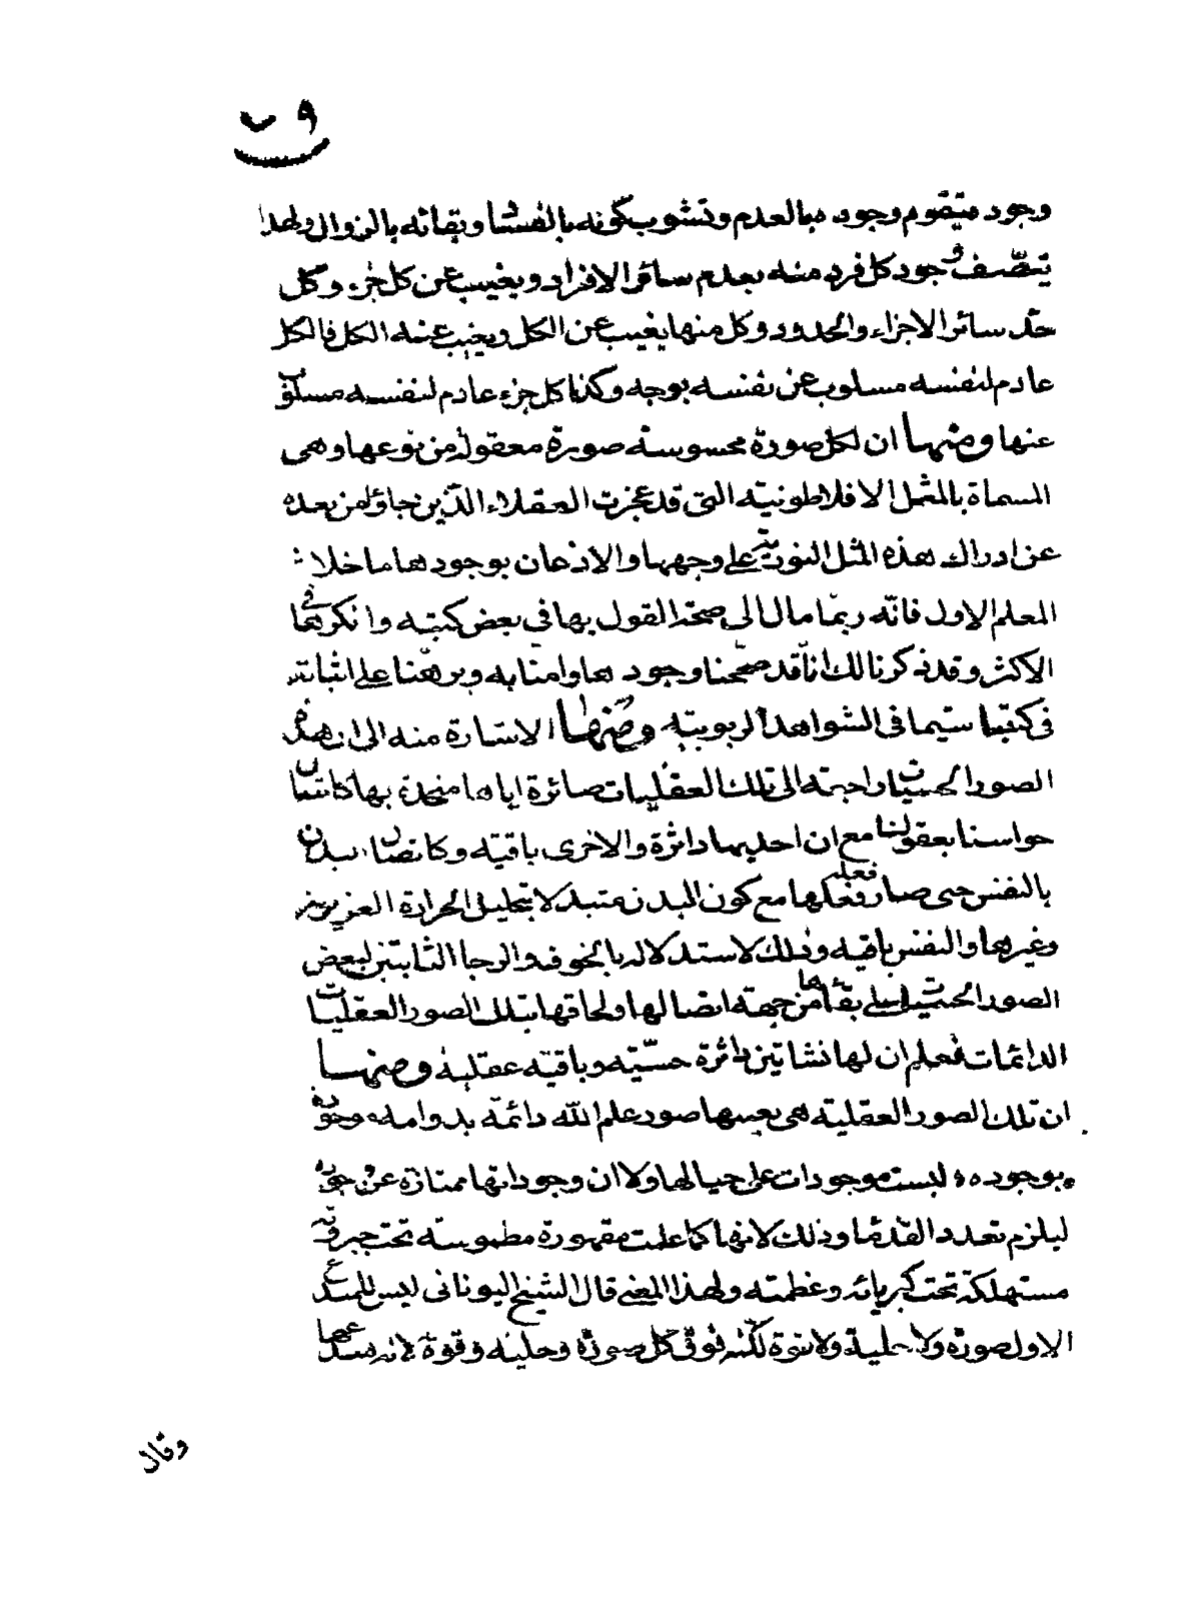 وجود يتقوم وجوده بالعدم وتشوب كونه بالفساد وبقائه بالزوال ولهذا
يتصف وجود كل فرد منه بعدم سائر الافراد ويغيب عن كل جزء وكل
حد سائر الاجزاء والحدود وكل منها يغيب عن الكل ويغيب عنه الكل فالكل
عادم لنفسه مسلوب عن نفسه بوجه وكذا كل جزء عادم لنفسه مسلوب
عنها ومنها ان لكل صورة محسوسة صورة معقولة من نوعها وهى
المسماة بالمثل الافلاطونية التى قد عجزت العقلاء الذين جاؤا من بعده
عن ادراك هذه المثل النورية على وجهها والاذعان بوجودها ما خلا
المعلم الاول فانه ربما مال الى صحة القول بها فى بعض كتبه وانكرها فى
الاكثر وقد ذكرنا لك انا قد صححنا وجودها وامنا به وبرهنا على اثباته
فى كتبنا سيما فى الشواهد الربوبية ومنها الاشارة منه الى ان هذه
الصور الحسيات راجعة الى تلك العقليات صائرة اياها متحدة بها كاتصال
حواسنا بعقولنا مع ان احديهما داثرة والاخرى باقية وكاتصال البدن
بالنفس حتى صار فعله فعلها مع كون البدن متبدلا بتحليل الحرارة الغريزية
وغيرها والنفس باقية وذلك لاستدلاله بالخوف والرجا الثابتين لبعض
الصور الحسيات على بقائها من جهة اتصالها ولحاقها بتلك الصور العقليات
الدائمات فعلم ان لها نشاتين داثرة حسية وباقية عقلية ومنها
ان تلك الصور العقلية هى بعينها صور علم الله دائمة بدوامه موجودة
بوجوده ليست موجودات على حيالها ولا ان وجوداتها ممتازة عن وجوده
ليلزم تعدد القدما وذلك لانها كما علمت مقهورة مطموسة تحت جبروته
مستهلكة تحت كبريائه وعظمته ولهذا المعنى قال الشيخ اليونانى ليس للمبدع
الاول صورة ولا حلية ولا قوة لكنه فوق كل صورة وحلية وقوة لانه مبدعها
وقال